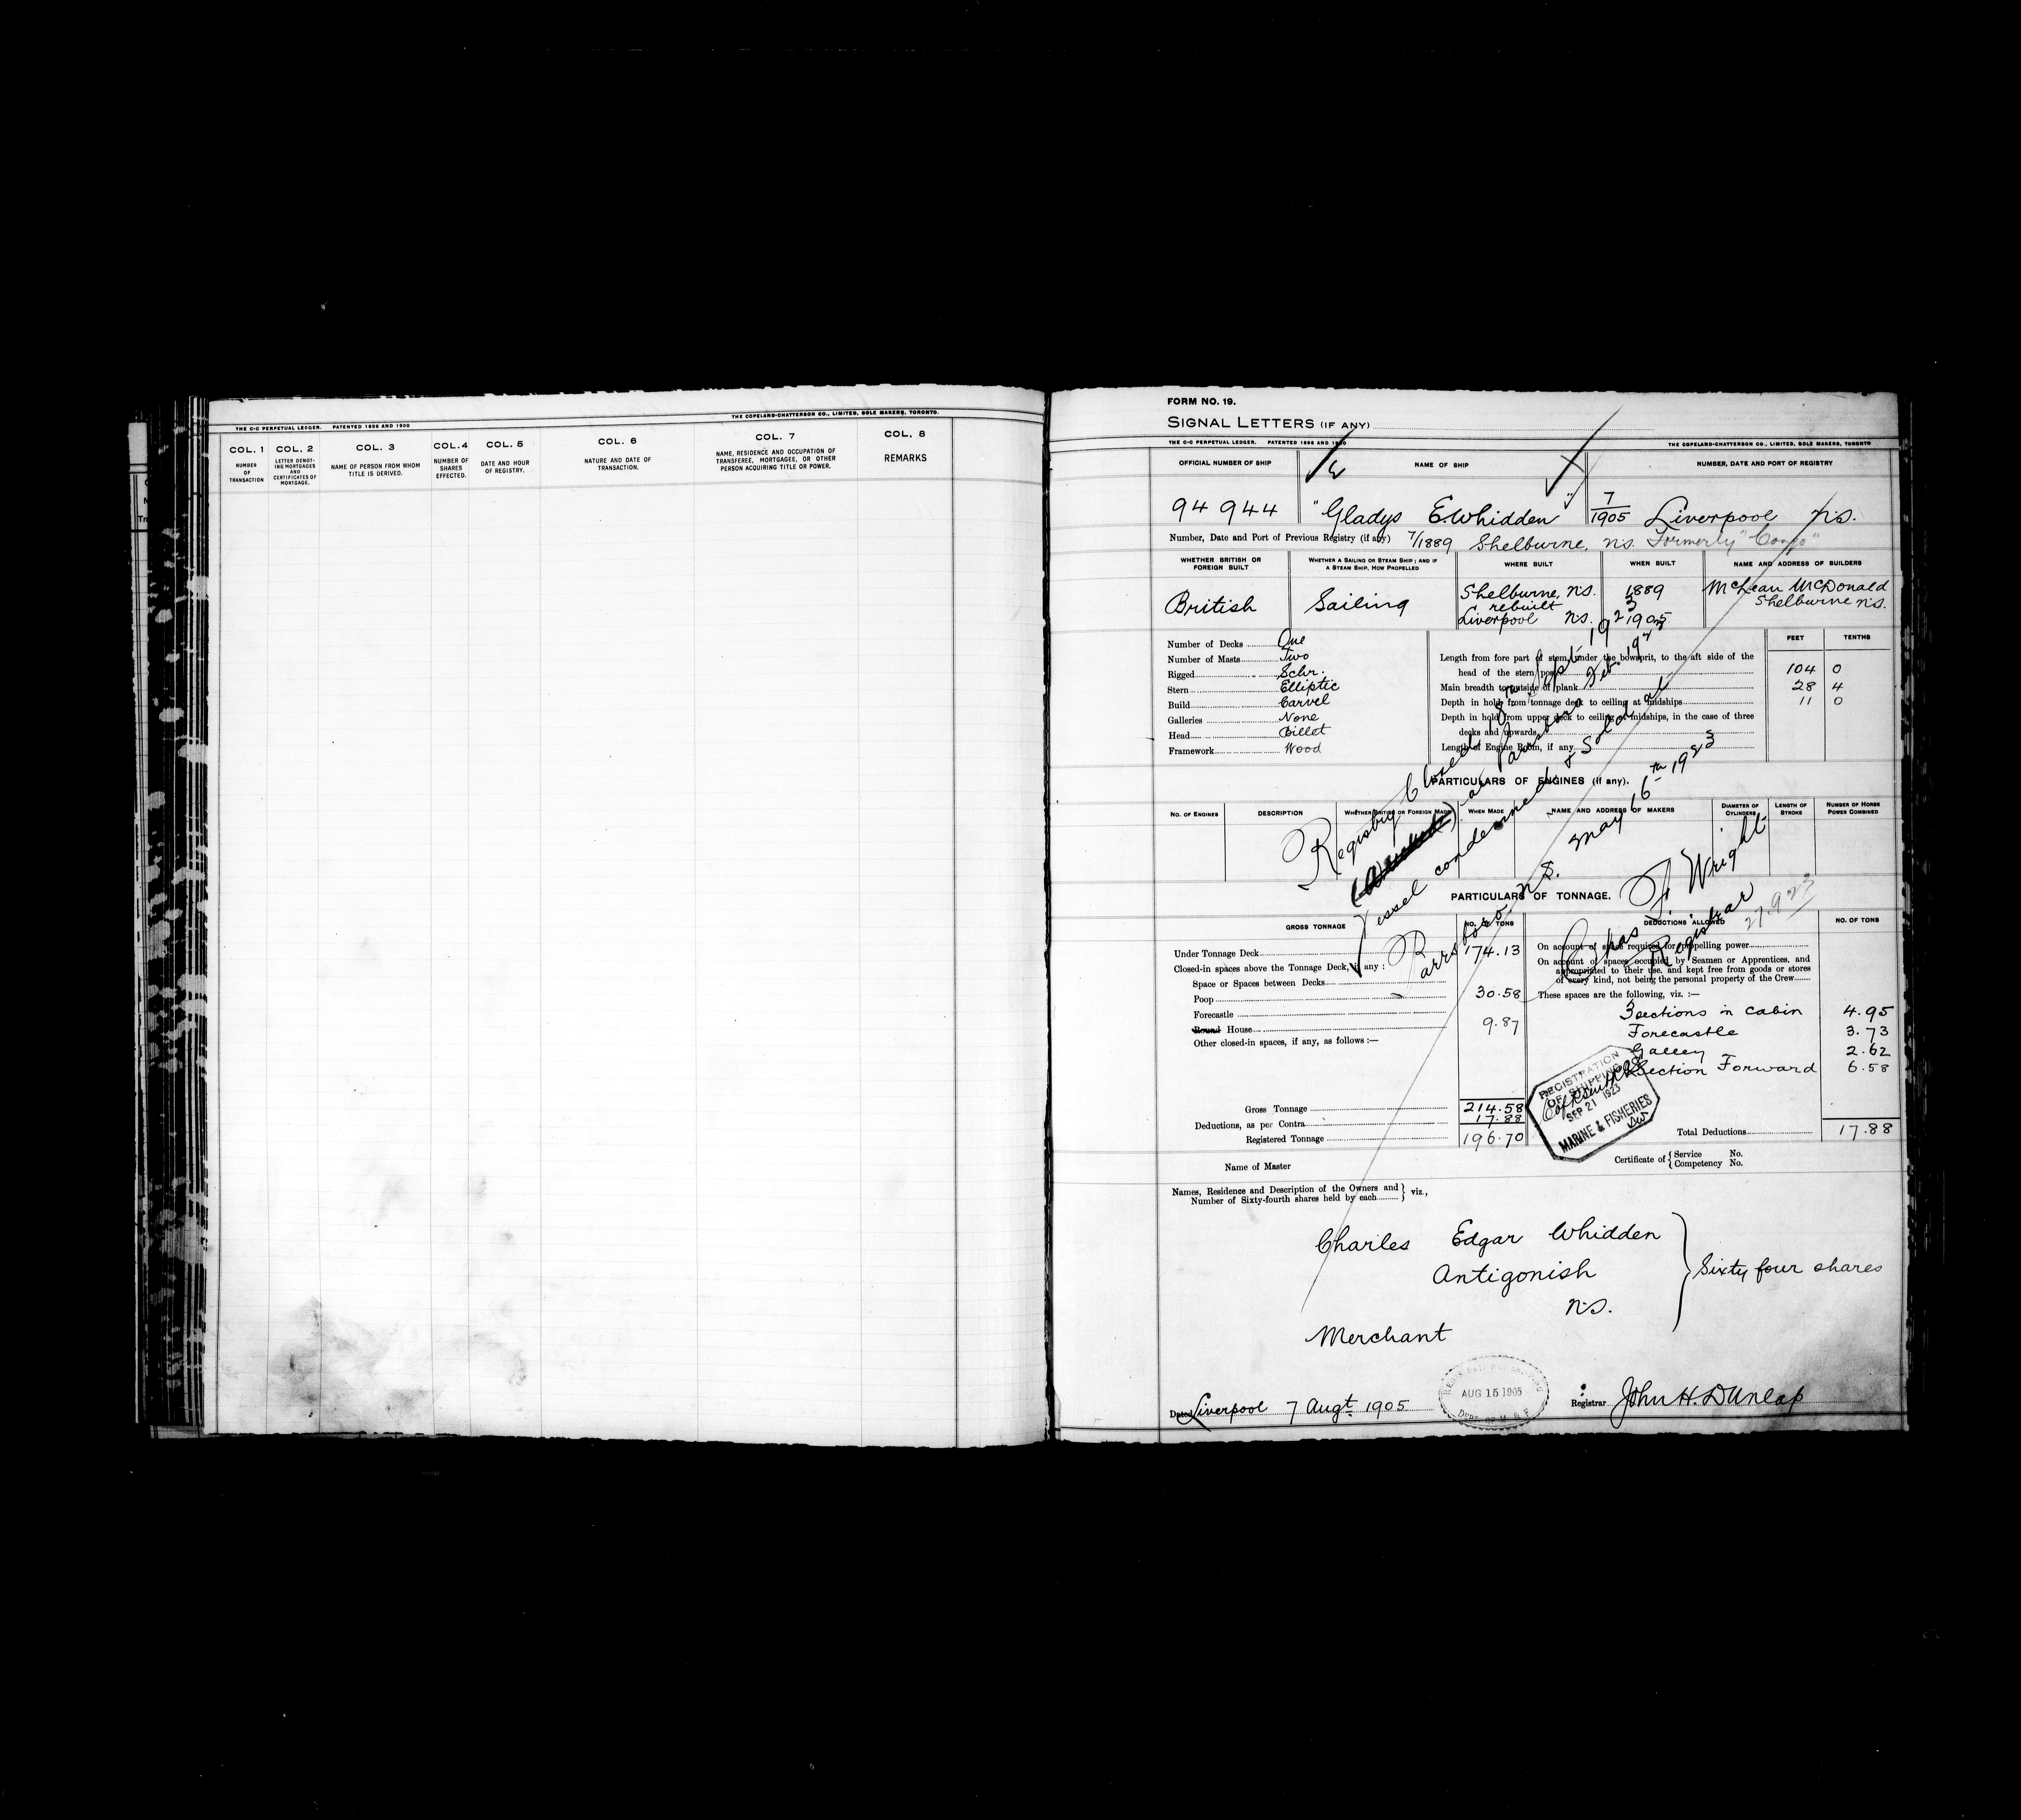 THE C-C PERPETUAL LEDGER. PATENTED 1896 AND 1900 THE COPELAND-CHATTERSON CO., LIMITED, SOLE MAKERS, TORONTO.
COL. 1 COL. 2 COL. 3 COL. 4 COL. 5 COL. 6 COL. 7 COL. 8
NUMBER OF TRANSACTION
LETTER DENOTING MORTGAGES AND CERTIFICATES OF MORTGAGE.
NAME OF PERSON FROM WHOM TITLE IS DERIVED.
NUMBER OF SHARES EFFECTED.
DATE AND HOUR OF REGISTRY.
NATURE AND DATE OF TRANSACTION.
NAME, RESIDENCE AND OCCUPATION OF TRANSFEREE, MORTGAGEE, OR OTHER PERSON ACQUIRING TITLE OR POWER.
REMARKS
FORM NO. 19.
SIGNAL LETTERS (IF ANY)
THE C-C PERPETUAL LEDGER. PATENTED 1896 AND 1900 THE COPELAND-CHATTERSON CO., LIMITED, SOLE MAKERS, TORONTO
OFFICIAL NUMBER OF SHIP NAME OF SHIP NUMBER, DATE AND PORT OF REGISTRY
94 944 "Gladys E. Whidden" 7/1905 Liverpool N.S.
Number, Date and Port of Previous Registry (if any) 7/1889 Shelburne, N.S. Formerly "Congo"
WHETHER BRITISH OR FOREIGN BUILT
WHETHER A SAILING OR STEAM SHIP; AND IF A STEAM SHIP, HOW PROPELLED
WHERE BUILT WHEN BUILT NAME AND ADDRESS OF BUILDERS
British Sailing Shelburne, N.S. 1889 McLean McDonald
rebuilt Shelburne N.S.
Liverpool N.S. 1905
FEET TENTHS
Number of Decks One
Number of Masts Two
Rigged Schr.
Stern Elliptic
Build Carvel
Galleries None
Head Billet
Framework Wood
Length from fore part of stem, under the bowsprit, to the aft side of the
head of the stern post 104 0
Main breadth to outside of plank 28 4
Depth in hold from tonnage deck to ceiling at midships 11 0
Depth in hold from upper deck to ceiling at midships, in the case of three
decks and upwards
Length of Engine Room, if any
Registry Closed 18th Sept 1923
at Parrsboro Feb. 1923
Vessel condemned & Sold at
Parrsboro N.S. May 16th 1923
Chas F. Wright
Registrar
27.9.23
PARTICULARS OF ENGINES (if any).
NO. OF ENGINES DESCRIPTION WHETHER BRITISH OR FOREIGN MADE WHEN MADE NAME AND ADDRESS OF MAKERS DIAMETER OF CYLINDERS LENGTH OF STROKE NUMBER OF HORSE POWER COMBINED
PARTICULARS OF TONNAGE.
GROSS TONNAGE NO. OF TONS DEDUCTIONS ALLOWED NO. OF TONS
Under Tonnage Deck 174.13
Closed-in spaces above the Tonnage Deck, if any :
Space or Spaces between Decks
Poop 30.58
Forecastle
Round House 9.87
Other closed-in spaces, if any, as follows :—
Gross Tonnage 214.58
Deductions, as per Contra 17.88
Registered Tonnage 196.70
On account of space required for propelling power
On account of spaces occupied by Seamen or Apprentices, and
appropriated to their use, and kept free from goods or stores
of every kind, not being the personal property of the Crew
These spaces are the following, viz. :—
3 sections in cabin 4.95
Forecastle 3.73
Galley 2.62
Section Forward 6.58
Total Deductions 17.88
REGISTRATION
OF SHIPPING
SEP 21 1923
MARINE & FISHERIES
Name of Master
Certificate of { Service No.
Competency No.
Names, Residence and Description of the Owners and
Number of Sixty-fourth shares held by each } viz.,
Charles Edgar Whidden
Antigonish
N.S.
Merchant
Sixty four shares
Dated Liverpool 7 Augt. 1905
AUG 15 1905
Registrar John H. Dunlap